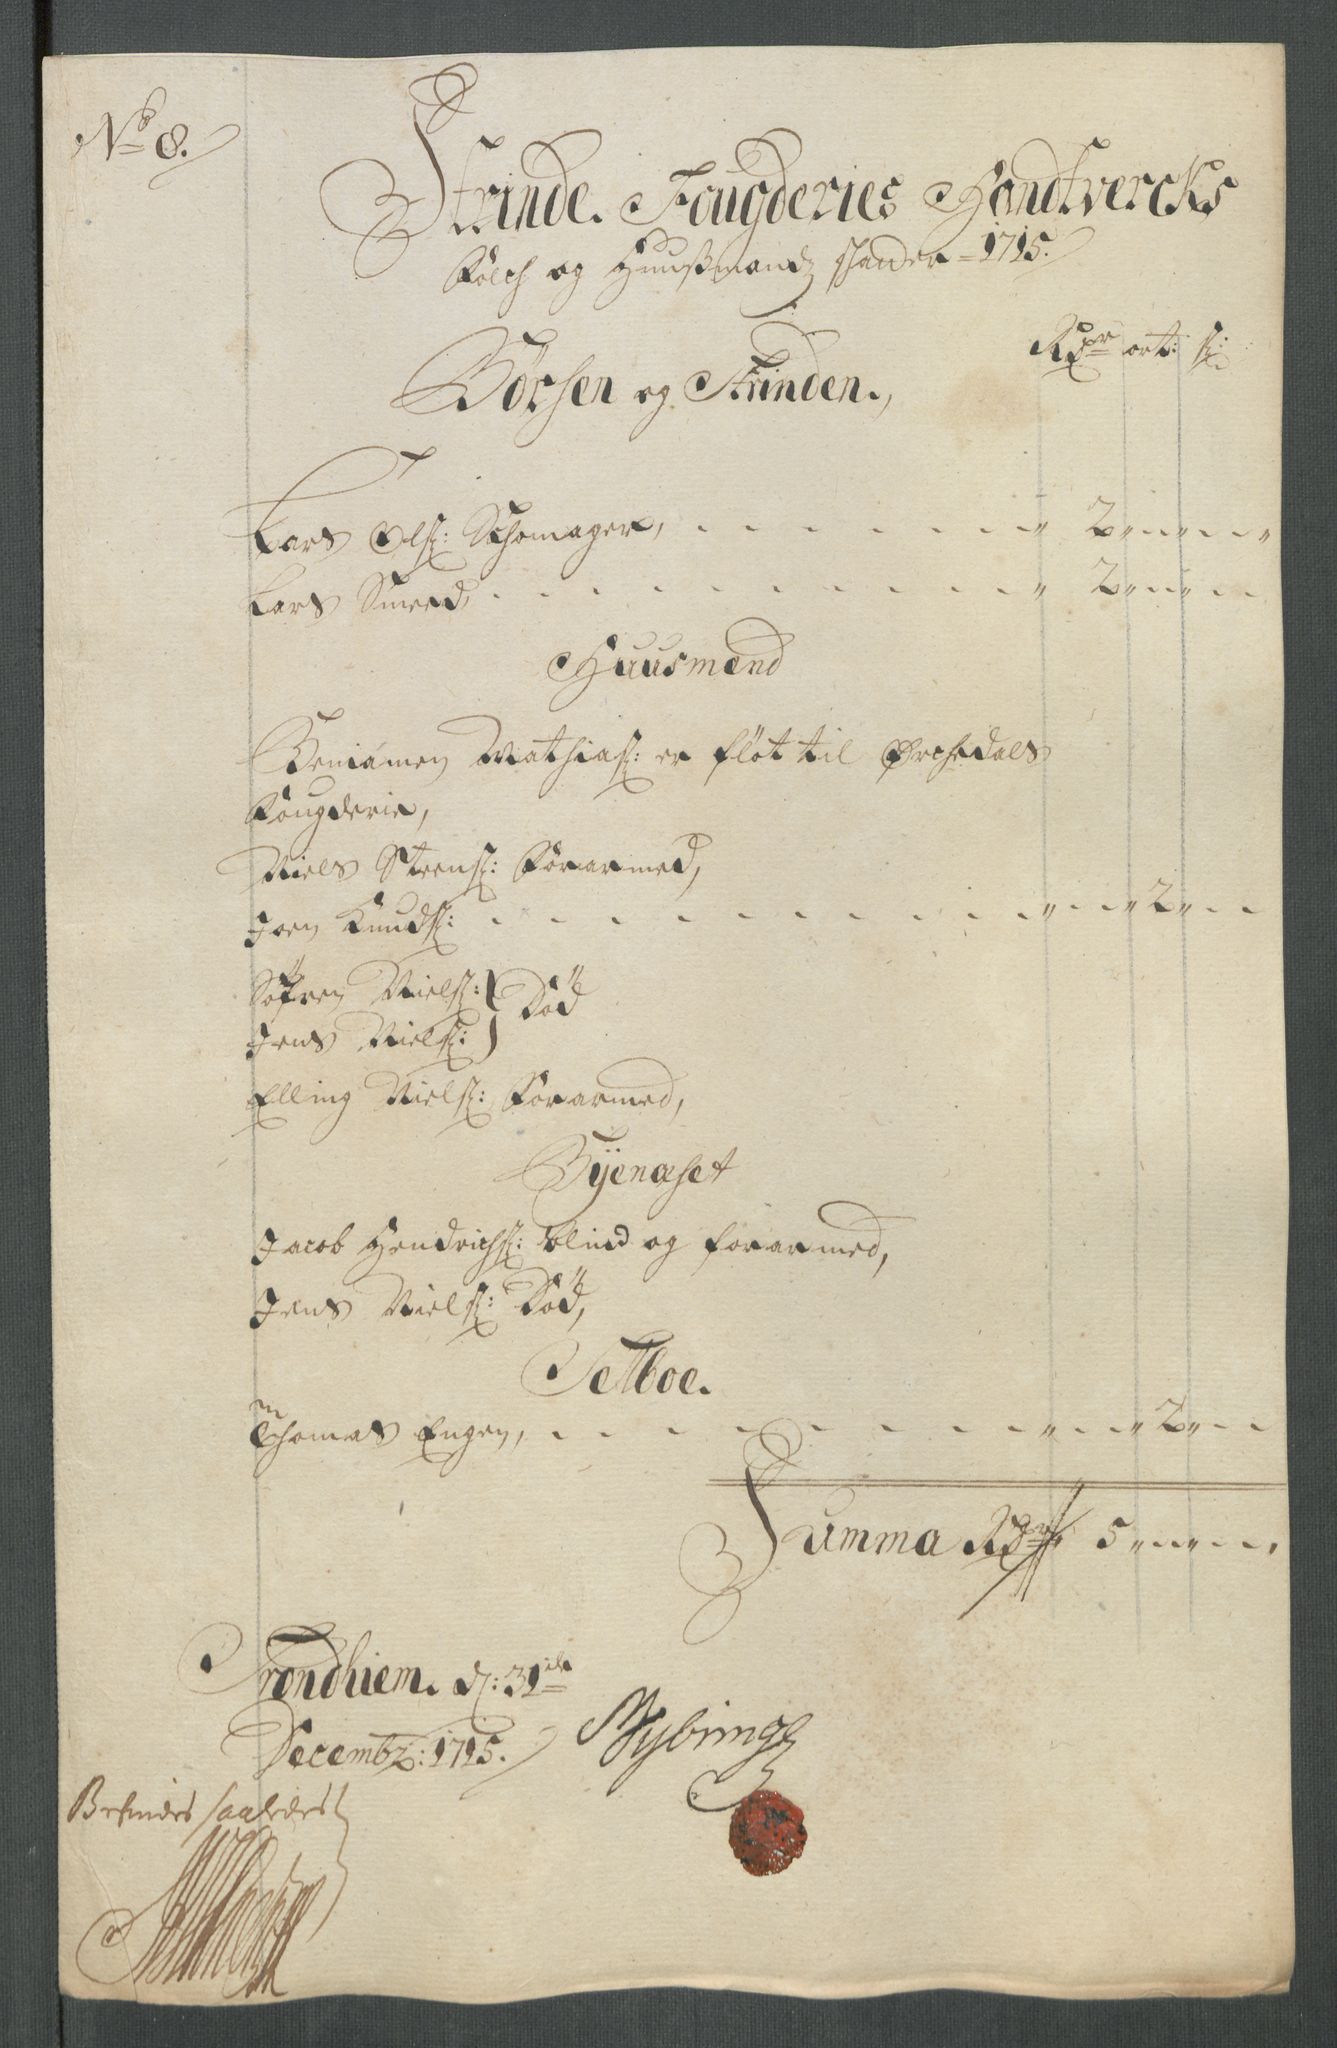 No 8.
Strinde Fougderies Handtvercks
Folch og Huusmænds schatter 1715.
Rdr ort: s:
Børsen og Strinden.
Lars Ols: Schomager, 2
Lars Smed, 2
Huusmænd
Beniamen Mathias: er fløt til Ørchedals
Fougderie,
Niels Steens: Forarmed,
Joen Knuds: 2
Søfren Niels: } Død
Jens Niels:
Elling Niels: Forarmed,
Byenæset
Jacob Hendrichs: blind og forarmed,
Jens Niels: Død,
Selboe.
Thomas Engen, 2
Summa Rdr 5
Trondhiem. d: 31te
Decembr: 1715.
Befindes saaledes